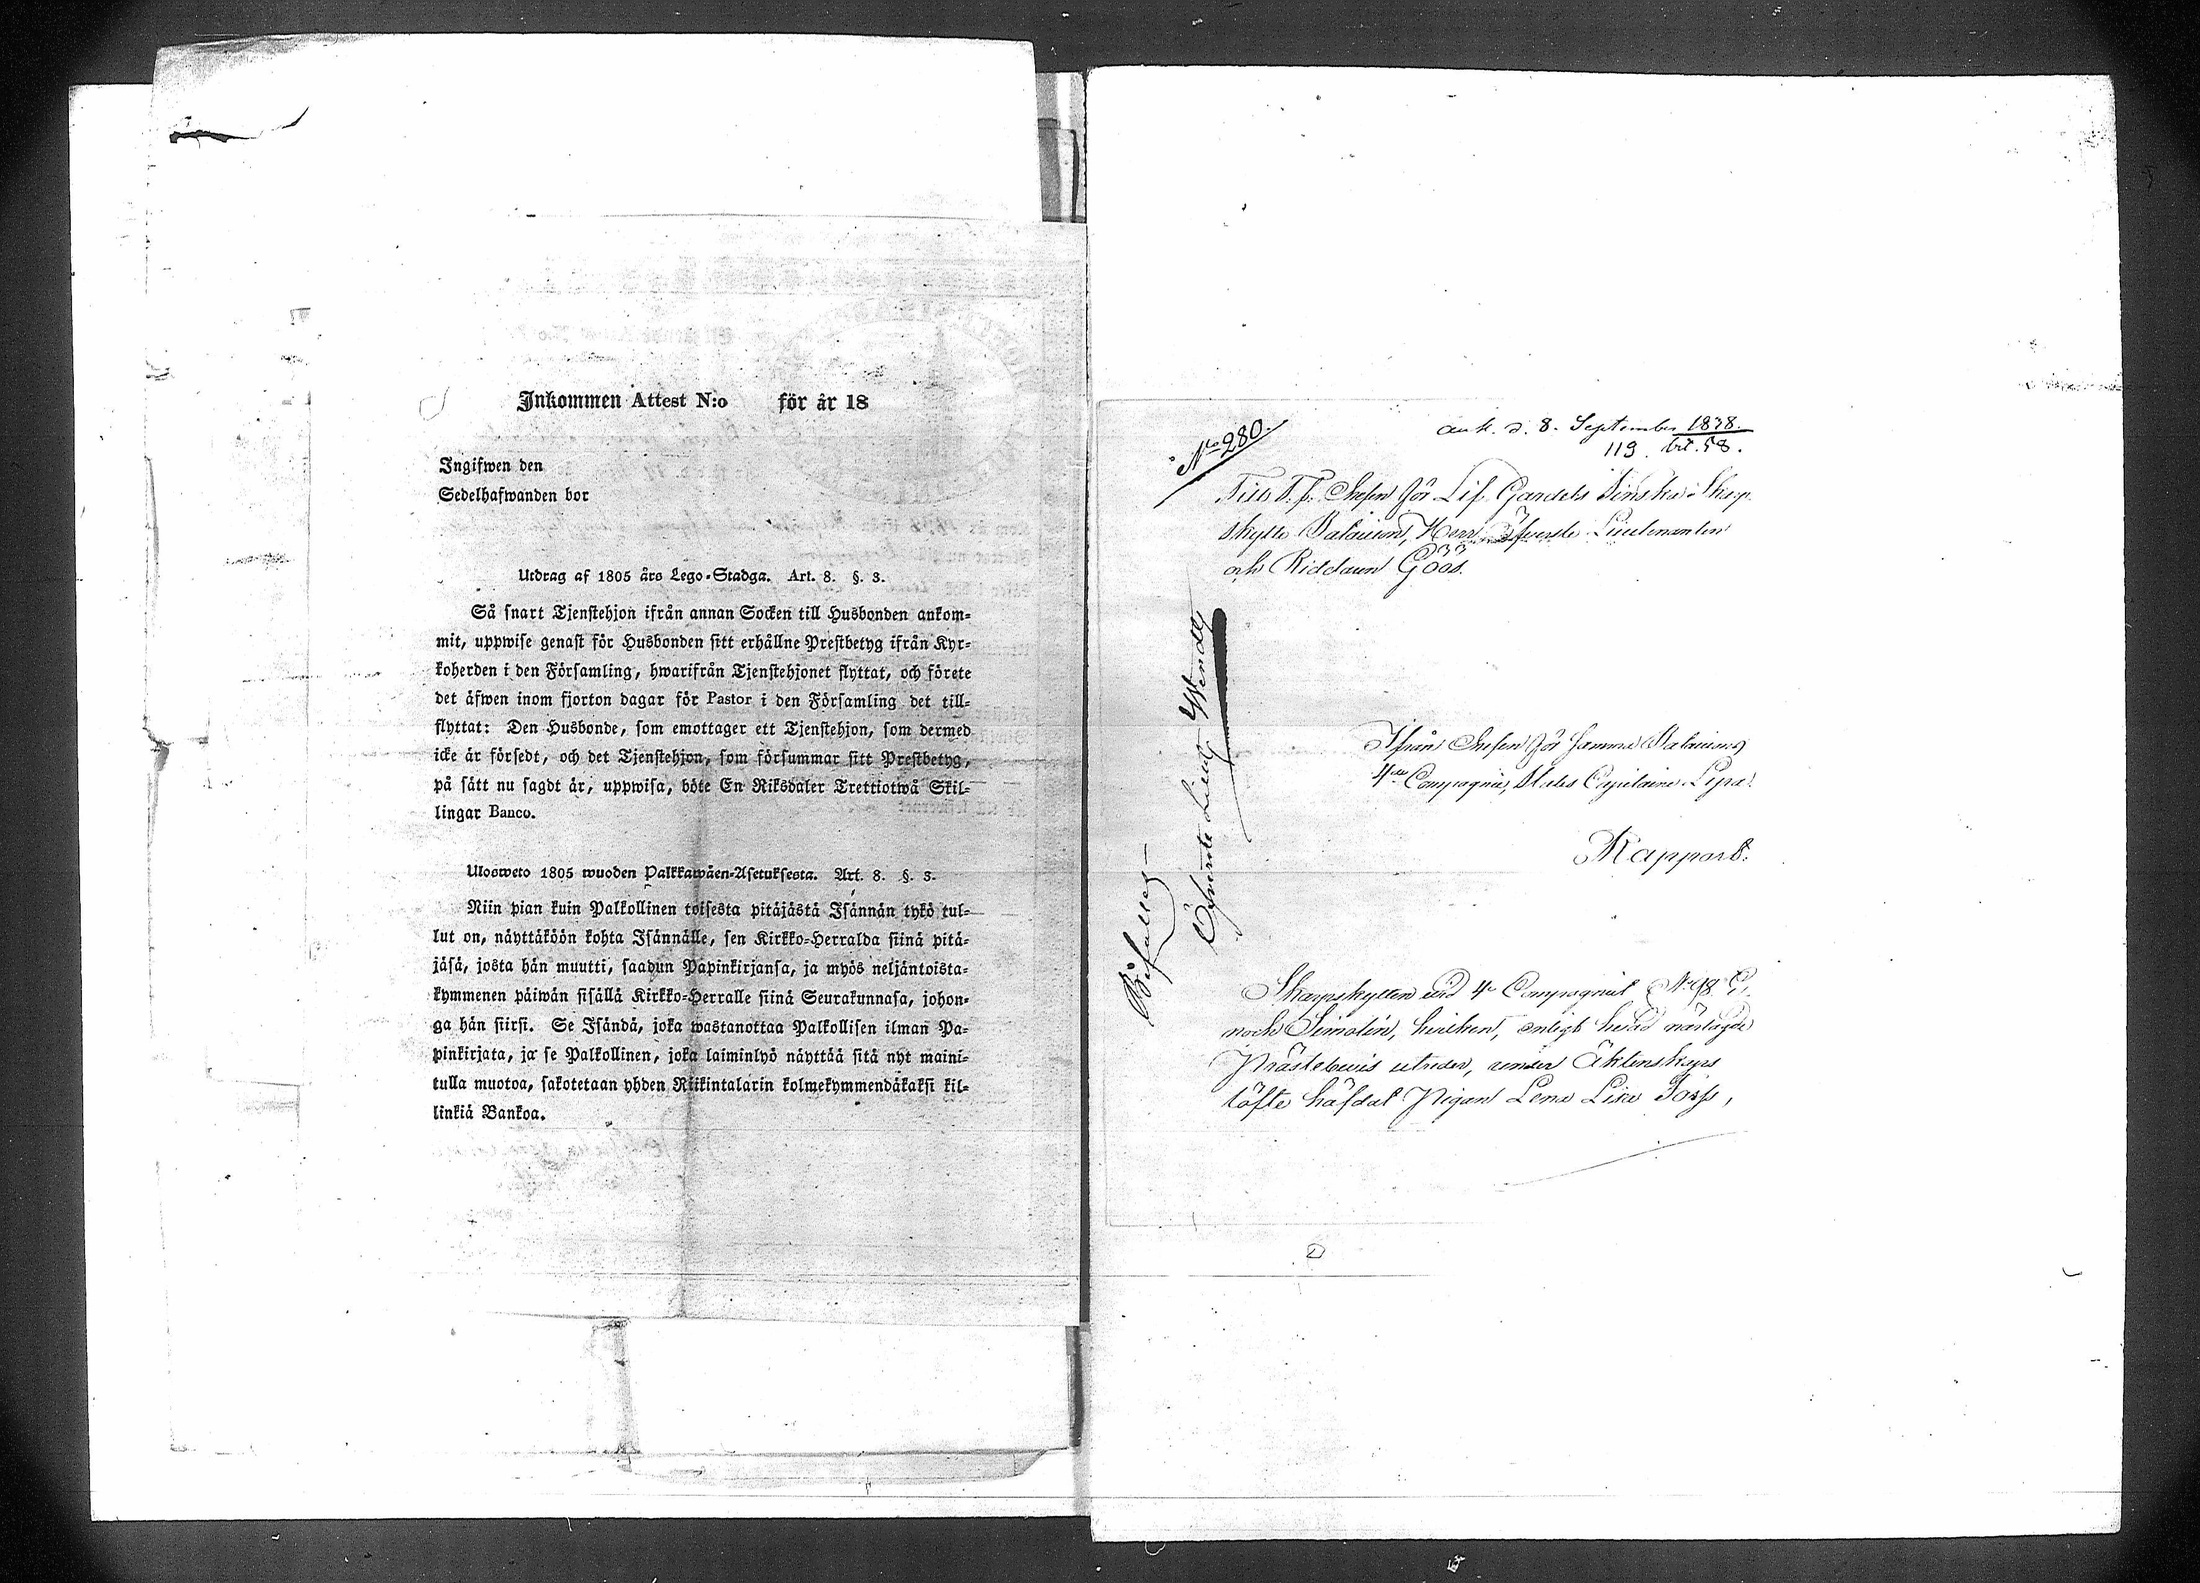 Inkommen Attest N:o för år 18
Ingifwen den
Sedelhafwanden bor
Utdrag af 1805 års Lego-Stadga. Art. 8. §. 3.
Så snart Tjenstehjon ifrån annan Socken till Husbonden ankom-
mit, uppwise genast för Husbonden sitt erhållne Prestbetyg ifrån Kyr-
koherden i den Församling, hwarifrån Tjenstehjonet flyttat, och förete
det äfwen inom fjorton dagar för Pastor i den Församling det till-
flyttat: Den Husbonde, som emottager ett Tjenstehjon, som dermed
icke är försedt, och det Tjenstehjon, som försummar sitt Prestbetyg,
på sätt nu sagdt är, uppwisa, böte En Riksdaler Trettiotwå Skil-
lingar Banco.
Ulosweto 1805 wuoden Palkkawäen-Asetuksesta. Art. 8. §. 3.
Niin pian kuin Palkollinen toisesta pitäjästä Isännän tykö tul-
lut on, näyttäköön kohta Isännälle, sen Kirkko-Herralda siinä pitä-
jäsä, josta hän muutti, saadun Papinkirjansa, ja myös neljäntoista-
kymmenen päiwän sisällä Kirkko-Herralle siinä Seurakunnasa, johon-
ga hän siirsi. Se Isändä, joka wastanottaa Palkollisen ilman Pa-
pinkirjata, ja se Palkollinen, joka laiminlyö näyttää sitä nyt maini-
tulla muotoa, sakotetaan yhden Riikintalarin kolmekymmendäkaksi kil-
linkiä Bankoa.
No 280.
ank. d. 8. September 1838.
119. 58.
Till T. f. Chefen för Lif Gardets Finska Skarp
skytte Bataillon, Herr Öfverste Lieutenanten
och Riddaren Göös.
Ifrån Chefen för samma Bataillons
4de Compagnie, Stabs Capitaine
Rapport.
Bifalles
Öfverste Lieut Wendt
Skarpskytten vid 4e Compagniet No 98 E
noch Simolin, hvilken, enligt härhos närlagde
Prästebevis utreder, under Äktenskaps
löfte häfdat Pigan Lena Lisa